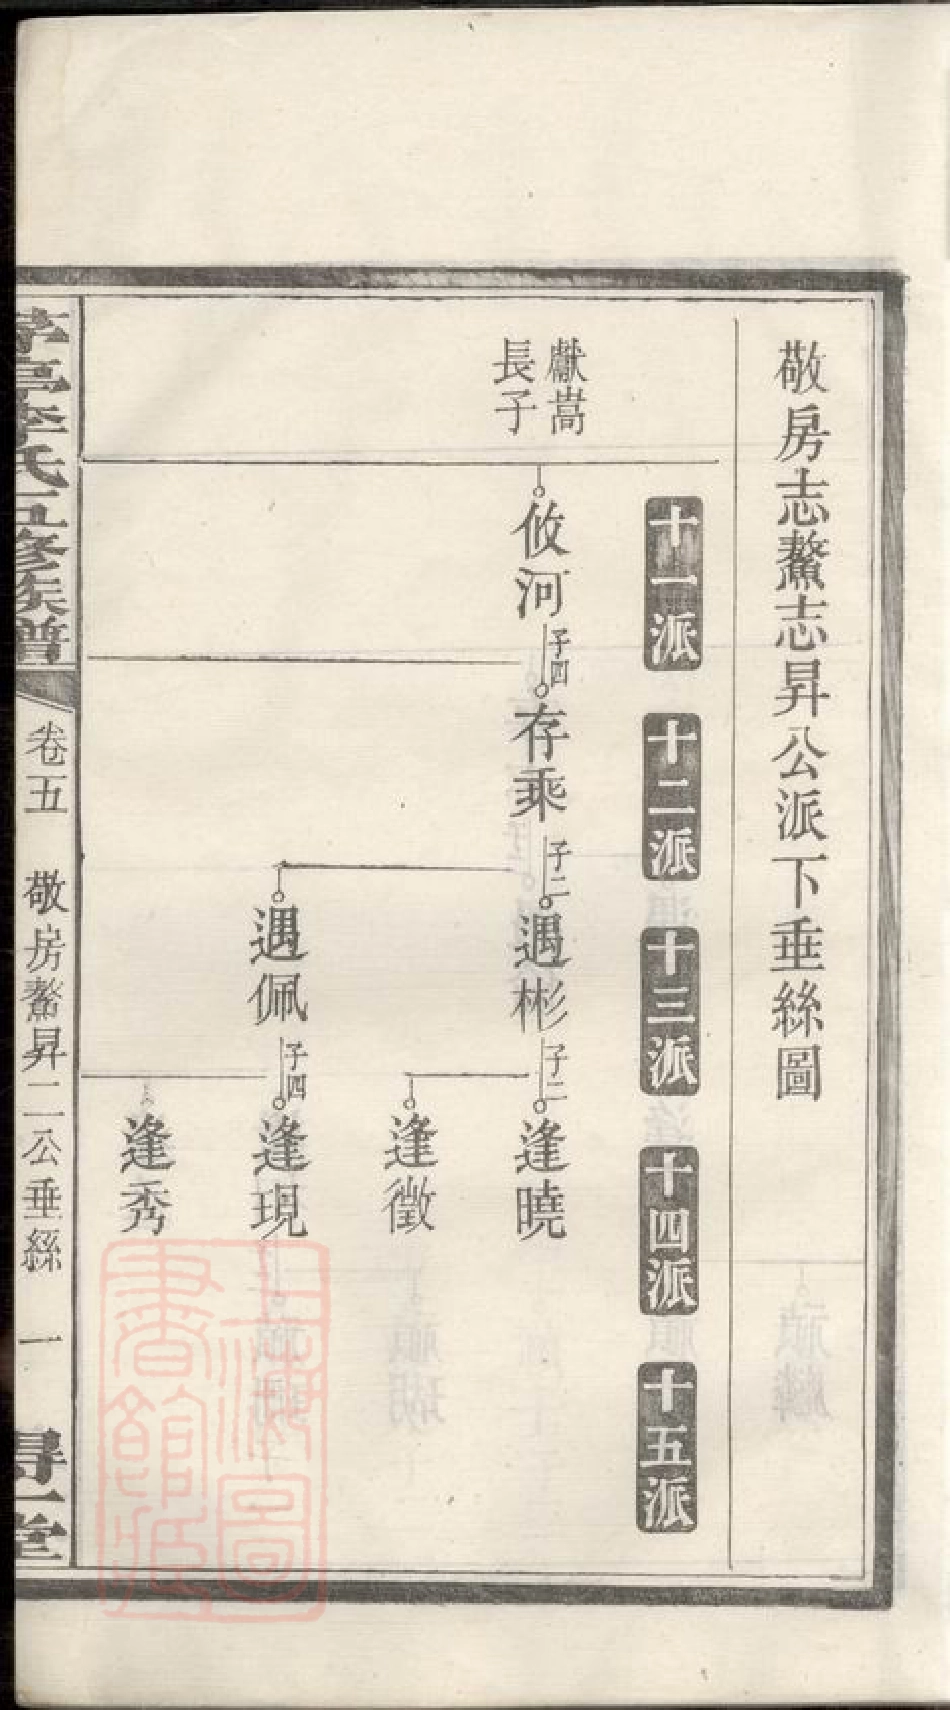 敬房志鰲志昇公派下垂絲圖
十一派
十二派
十三派
十四派
十五派
獻嵩
長子
攸河
子四
存乘
子二
遇彬
子二
逢曉
逢徵
遇佩
子四
逢現
逢秀
李氏五修族譜
卷五
敬房鰲昇二公垂絲
一
得一堂
上海圖
書館藏